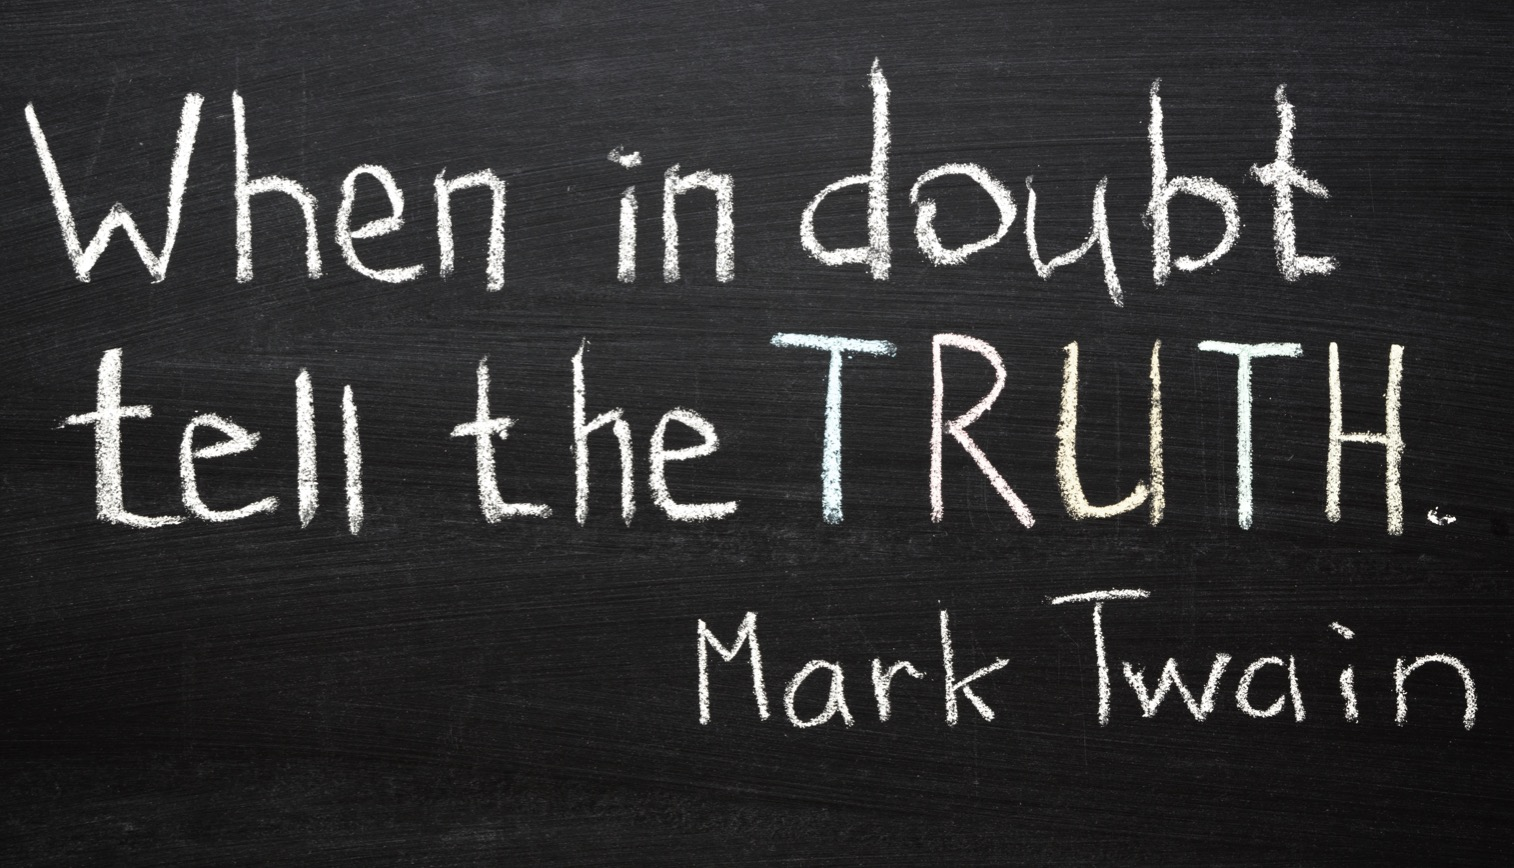 When in doubt
tell the TRUTH.
Mark Twain